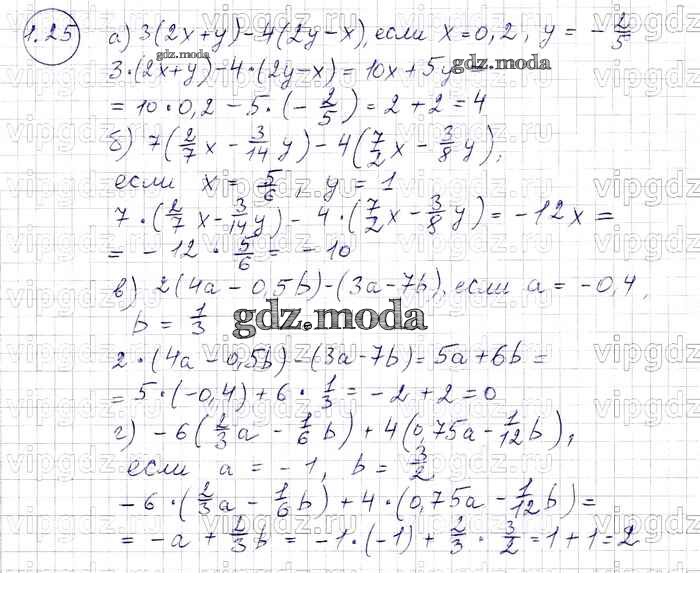 1.25 а) 3(2x+y)-4(2y-x), если x=0,2, y = -2/5
3·(2x+y)-4·(2y-x) = 10x+5y =
= 10·0,2 - 5·(-2/5) = 2+2=4
б) 7(2/7x - 3/14y) - 4(7/2x - 3/8y),
если x = 5/6, y = 1
7·(2/7x - 3/14y) - 4·(7/2x - 3/8y) = -12x =
= -12·5/6 = -10
в) 2(4a-0,5b)-(3a-7b), если a = -0,4,
b = 1/3
gdz.moda
2·(4a-0,5b)-(3a-7b) = 5a+6b =
= 5·(-0,4)+6·1/3 = -2+2=0
г) -6(2/3a - 1/6b) + 4(0,75a - 1/12b),
если a = -1, b = 3/2
-6·(2/3a - 1/6b) + 4·(0,75a - 1/12b) =
= -a + 2/3b = -1·(-1) + 2/3·3/2 = 1+1=2